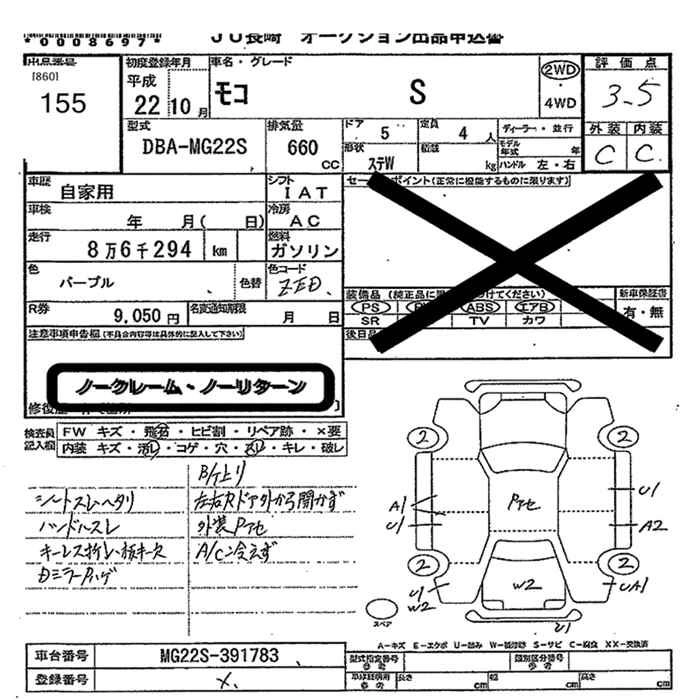 *0008697*
JU長崎 オークション出品申込書
出品番号
[860]
155
初度登録年月
平成
22 10 月
車名・グレード
モコ S
2WD
・
4WD
評価点
3.5
外装 内装
C C
型式
DBA-MG22S
排気量
660
CC
ドア 5
定員 4 人
ディーラー・並行
モデル年式 年
形状 ステW
積載 kg
ハンドル 左・右
車歴
自家用
シフト
IAT
車検
年 月( 日)
冷房
AC
走行
8万6千294 km
燃料
ガソリン
色
パープル
色替
色コード
ZED
R券
9,050 円
名変通知期限
月 日
セールスポイント(正常に機能するものに限ります)
装備品
PS
ABS
エアB
SR
TV
カワ
新車保証書
有・無
後日品
注意事項申告欄(不具合内容等は具体的に記入して下さい)
ノークレーム・ノーリターン
検査員記入欄
FW キズ・飛石・ヒビ割・リペア跡・×要
内装 キズ・汚レ・コゲ・穴・スレ・キレ・破レ
シートスレヘタリ
ハンドルスレ
B/ケ上り
左右Rドア外から開かず
外装Pアセ
A/C冷えず
2
2
2
2
A1
U1
Pアセ
U1
A2
U1
W2
W2
UA1
U1
スペア
A-キズ E-エクボ U-凹み W-補修跡 S-サビ C-腐食 XX-交換済
車台番号
MG22S-391783
登録番号
×
型式指定番号
類別区分番号
長さ cm
幅 cm
高さ cm